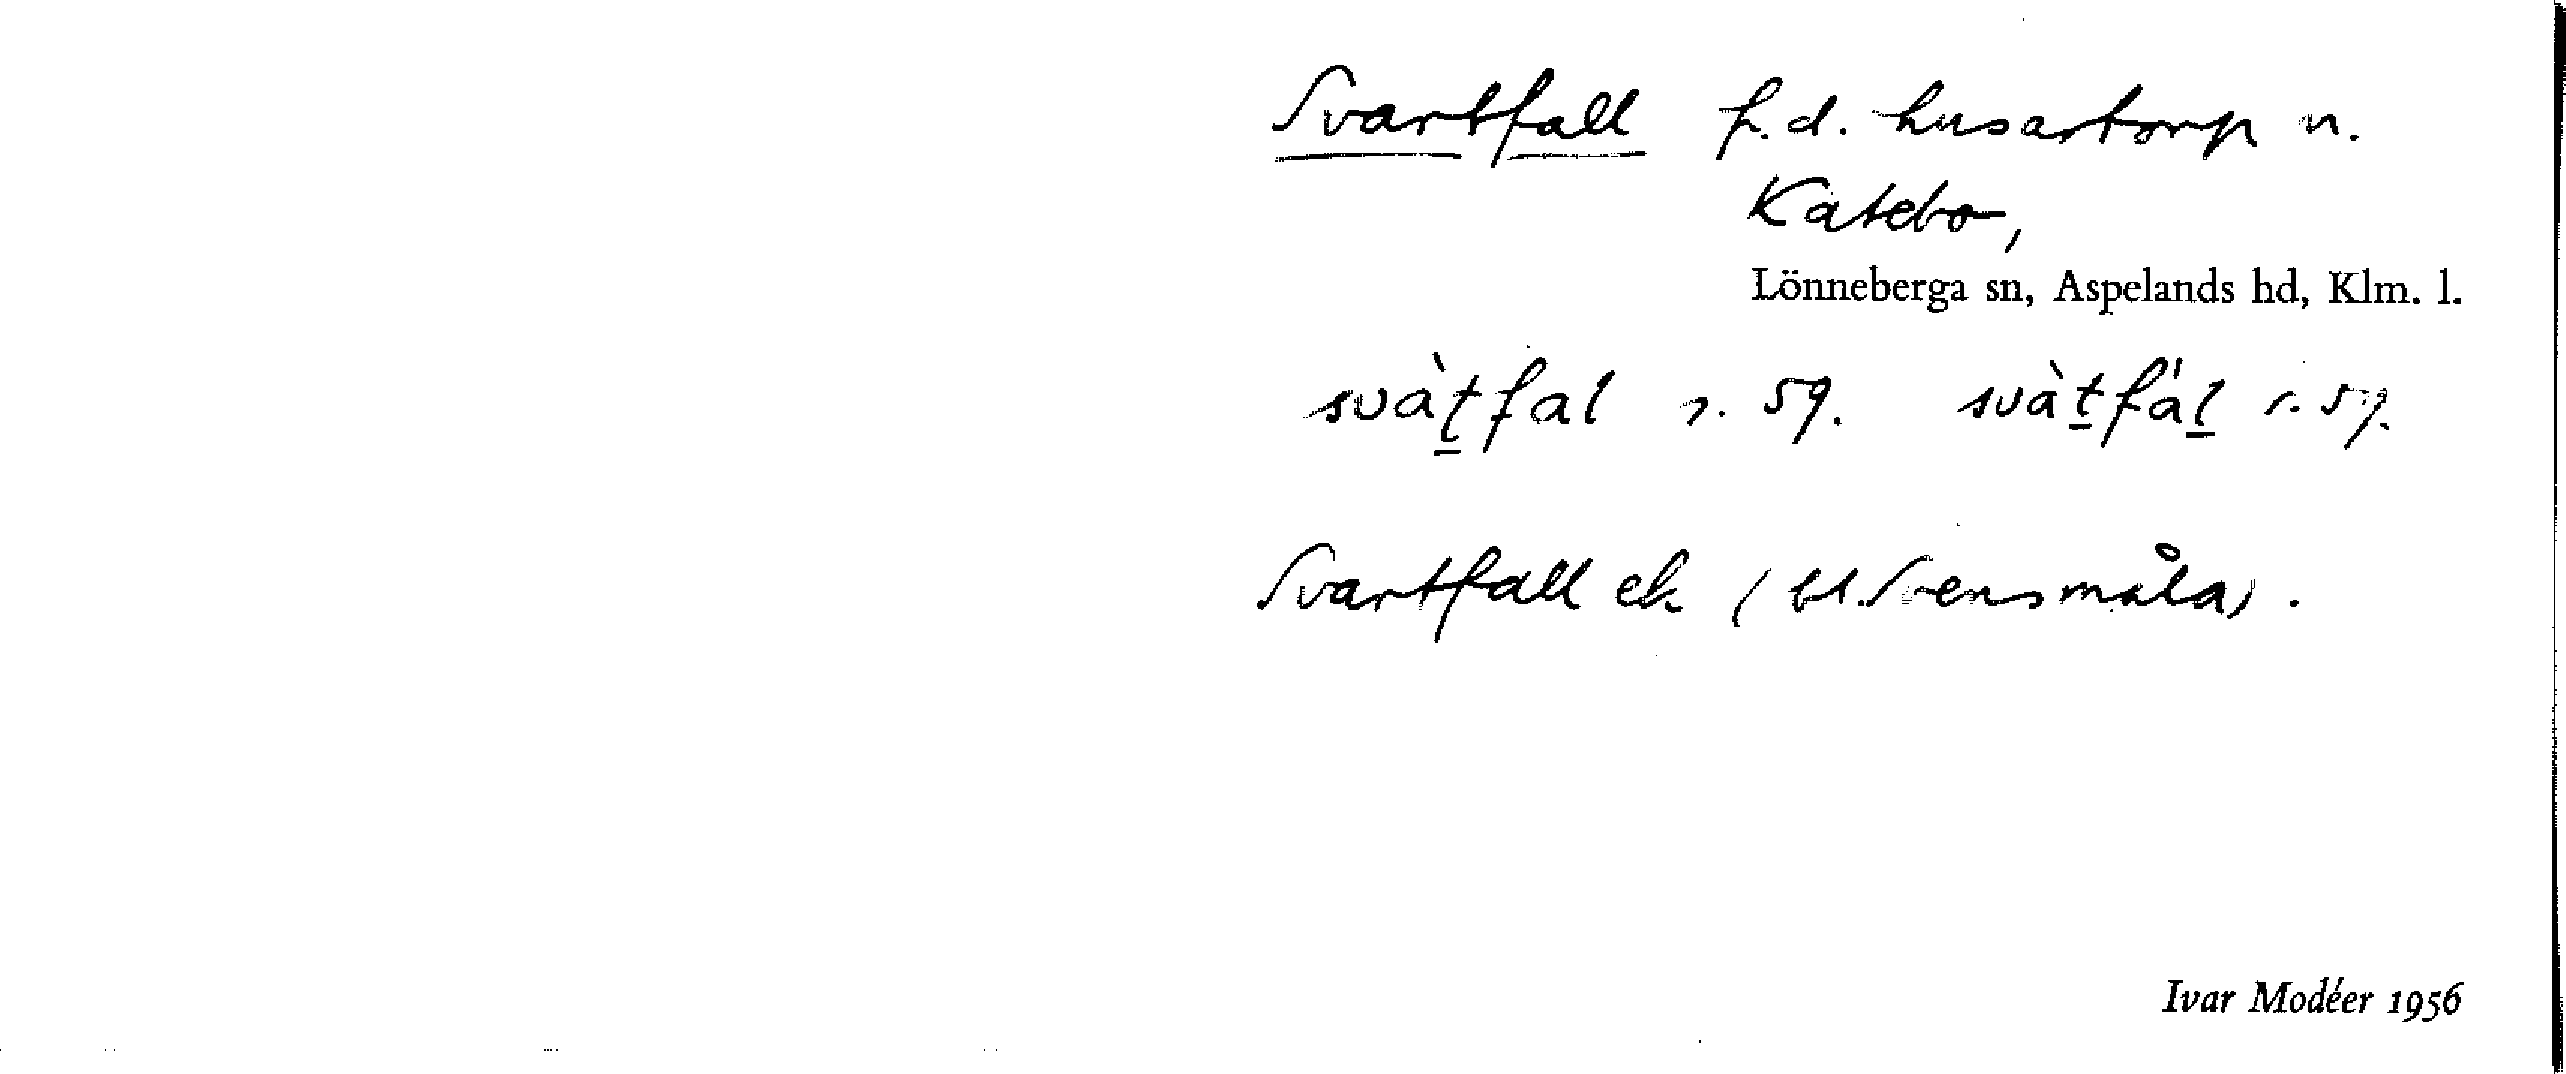 Svartfall f.d. husartorp u.
Katebo,
Lönneberga sn, Aspelands hd, Klm. l.
svàt̲fal s. 59. svàt̲fál̲ s. 59.
Svartfall ek (bl. Svensmåla).
Ivar Modéer 1956